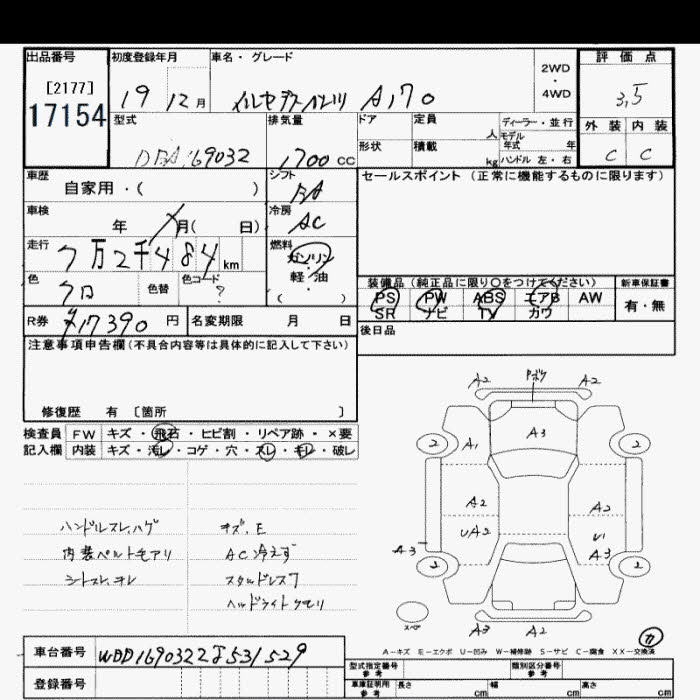 出品番号 初度登録年月 車名・グレード 2WD・4WD 評価点
[2177]
17154
19 12月 メルセデスベンツ A170 3.5
型式 排気量 ドア 定員 人 ディーラー・並行 外装 内装
モデル年式 年
DBA169032 1700 CC 形状 積載 kg ハンドル 左・右 C C
車歴 自家用・( ) シフト FA セールスポイント (正常に機能するものに限ります)
車検 年 月( 日) 冷房 AC
走行 7万2千484 km 燃料 ガソリン 軽・油 ( )
色 クロ 色替 色コード ?
装備品 (純正品に限り○をつけてください) 新車保証書
PS PW ABS エアB AW 有・無
SR ナビ TV カワ
R券 ¥17390 円 名変期限 月 日 後日品
注意事項申告欄 (不具合内容等は具体的に記入して下さい)
修復歴 有 〔箇所 〕
検査員 FW キズ・飛石・ヒビ割・リペア跡・×要
記入欄 内装 キズ・汚レ・コゲ・穴・スレ・キレ・破レ
A2 A2
A3
2 A1 2
A2 A2
UA2 U1
A3 A3
2 2
スペア
A3 A2
ハンドルスレ,ハゲ キズ,E
内装ベルトモアリ AC冷えず
シートスレ,キレ スタッドレス7
ヘッドライトクモリ
A-キズ E-エクボ U-凹み W-補修跡 S-サビ C-腐食 XX-交換済
車台番号 WDD1690322J531529
型式指定番号 参考 類別区分番号 参考
登録番号 車庫証明用 参考 長さ cm 幅 cm 高さ cm